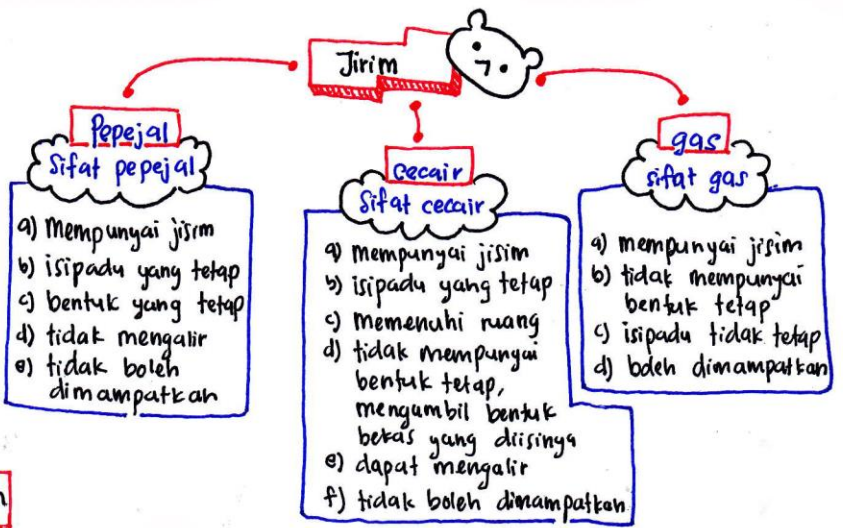 Jirim
Pepejal
Sifat pepejal
a) Mempunyai jisim
b) isipadu yang tetap
c) bentuk yang tetap
d) tidak mengalir
e) tidak boleh
dimampatkan
cecair
Sifat cecair
a) mempunyai jisim
b) isipadu yang tetap
c) memenuhi ruang
d) tidak mempunyai
bentuk tetap,
mengambil bentuk
bekas yang diisinya
e) dapat mengalir
f) tidak boleh dimampatkan
gas
sifat gas
a) mempunyai jisim
b) tidak mempunyai
bentuk tetap
c) isipadu tidak tetap
d) boleh dimampatkan